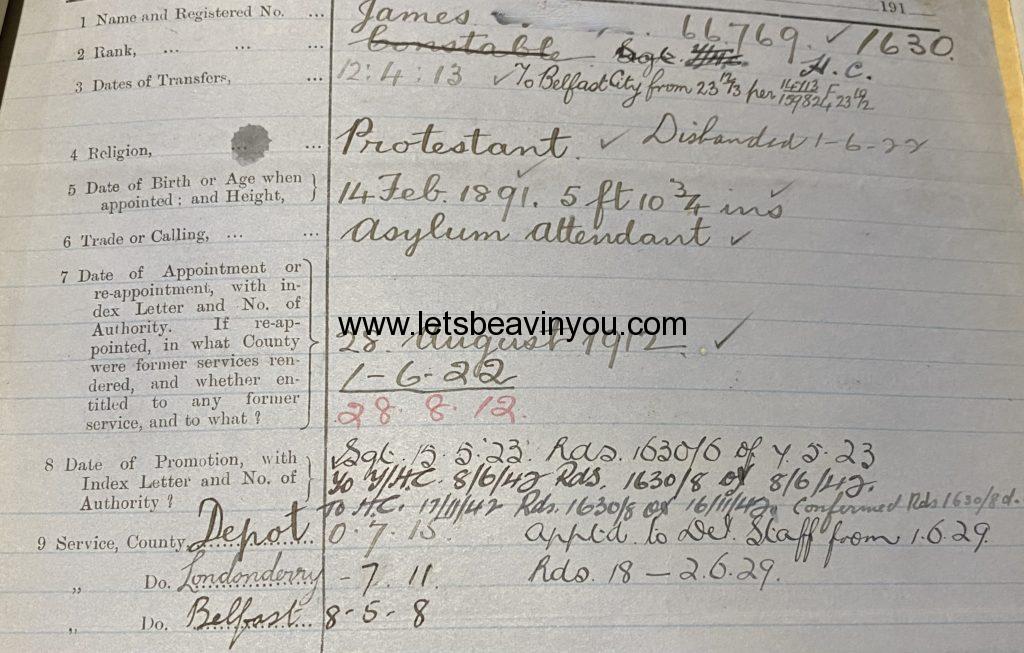 191
1 Name and Registered No. ... James 66.769. ✓ 1630.
2 Rank, ... ... ... Constable Sgt. Y/HC. H.C.
3 Dates of Transfers, ... 12:4:13 ✓ To Belfast City from 23 12/3 per 14113/15982 F 23 10/2
4 Religion, ... Protestant. ✓ Disbanded 1-6-22
5 Date of Birth or Age when appointed; and Height, 14 Feb. 1891. 5 ft 10 3/4 ins ✓
6 Trade or Calling, ... ... Asylum attendant ✓
7 Date of Appointment or
re-appointment, with in-
dex Letter and No. of
Authority. If re-ap-
pointed, in what County
were former services ren-
dered, and whether en-
titled to any former
service, and to what ?
www.letsbeavinyou.com
28. August 1912. ✓
1-6-22
28. 8. 12.
8 Date of Promotion, with
Index Letter and No. of
Authority ?
Sgt. 15.5.23. Rds. 1630/6 of 7.5.23
To Y/H.C. 8/6/42 Rds. 1630/8 of 8/6/42.
To H.C. 17/11/42 Rds. 1630/8 of 16/11/42. Confirmed Rds 1630/8d.
9 Service, County Depot 0.7.15. Apptd. to Det. Staff from 1.6.29.
„ Do. Londonderry - 7. 11. Rds. 18 — 2.6.29.
„ Do. Belfast 8-5-8